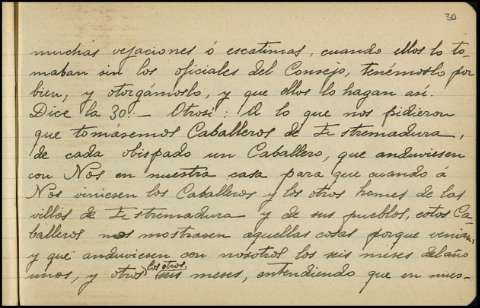 30.
muchas vejaciones ó escatimas, cuando ellos lo to-
maban sin los oficiales del Consejo, tenémoslo por
bien, y otorgámoslo, y que ellos lo hagan así.
Dice la 30ª — Otrosí: A lo que nos pidieron
que tomásemos Caballeros de Estremadura,
de cada obispado un Caballero, que anduviesen
con Nos en nuestra casa para que cuando á
Nos viniesen los Caballeros y los otros homes de las
villas de Estremadura y de sus pueblos, estos Ca-
balleros nos mostrasen aquellas cosas porque venían,
y que anduviesen con nosotros los seis meses del año
los otros
unos, y otros seis meses, entendiendo que en nues-